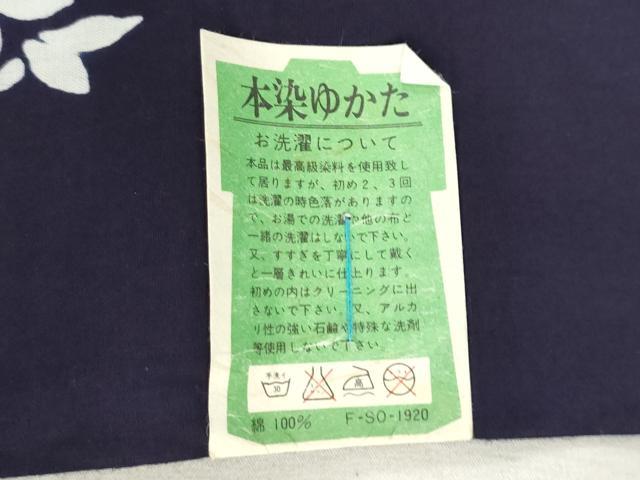 本染ゆかた
お洗濯について
本品は最高級染料を使用致し
て居りますが、初め2、3回
は洗濯の時色落がありますの
で、お湯での洗濯や他の布と
一緒の洗濯はしないで下さい。
又、すすぎを丁寧にして戴く
と一層きれいに仕上ります。
初めの内はクリーニングに出
さないで下さい。又、アルカ
リ性の強い石鹼や特殊な洗剤
等使用しないで下さい。
手洗イ
30
高
綿 100% F-SO-1920